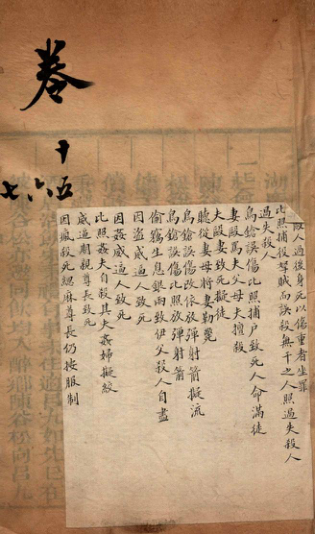 卷
十五
六
七
人過後身死以傷重者坐罪
比照捕役拏賊而誤殺無干之人照過失殺人
過失殺人
鳥鎗誤傷比照捕戶致死人命滿徒
妻毆罵夫父母夫擅殺
夫毆妻致死擬徒
聽從妻母將妻勒斃
鳥鎗誤傷改依放彈射箭擬流
鳥鎗誤傷比照放彈射箭
偷竊生息銀兩致伊父殺人自盡
因盜威逼人致死
因姦威逼人致死
比照姦夫自殺其夫姦婦擬絞
威逼期親尊長致死
因瘋致死緦麻尊長仍按服制